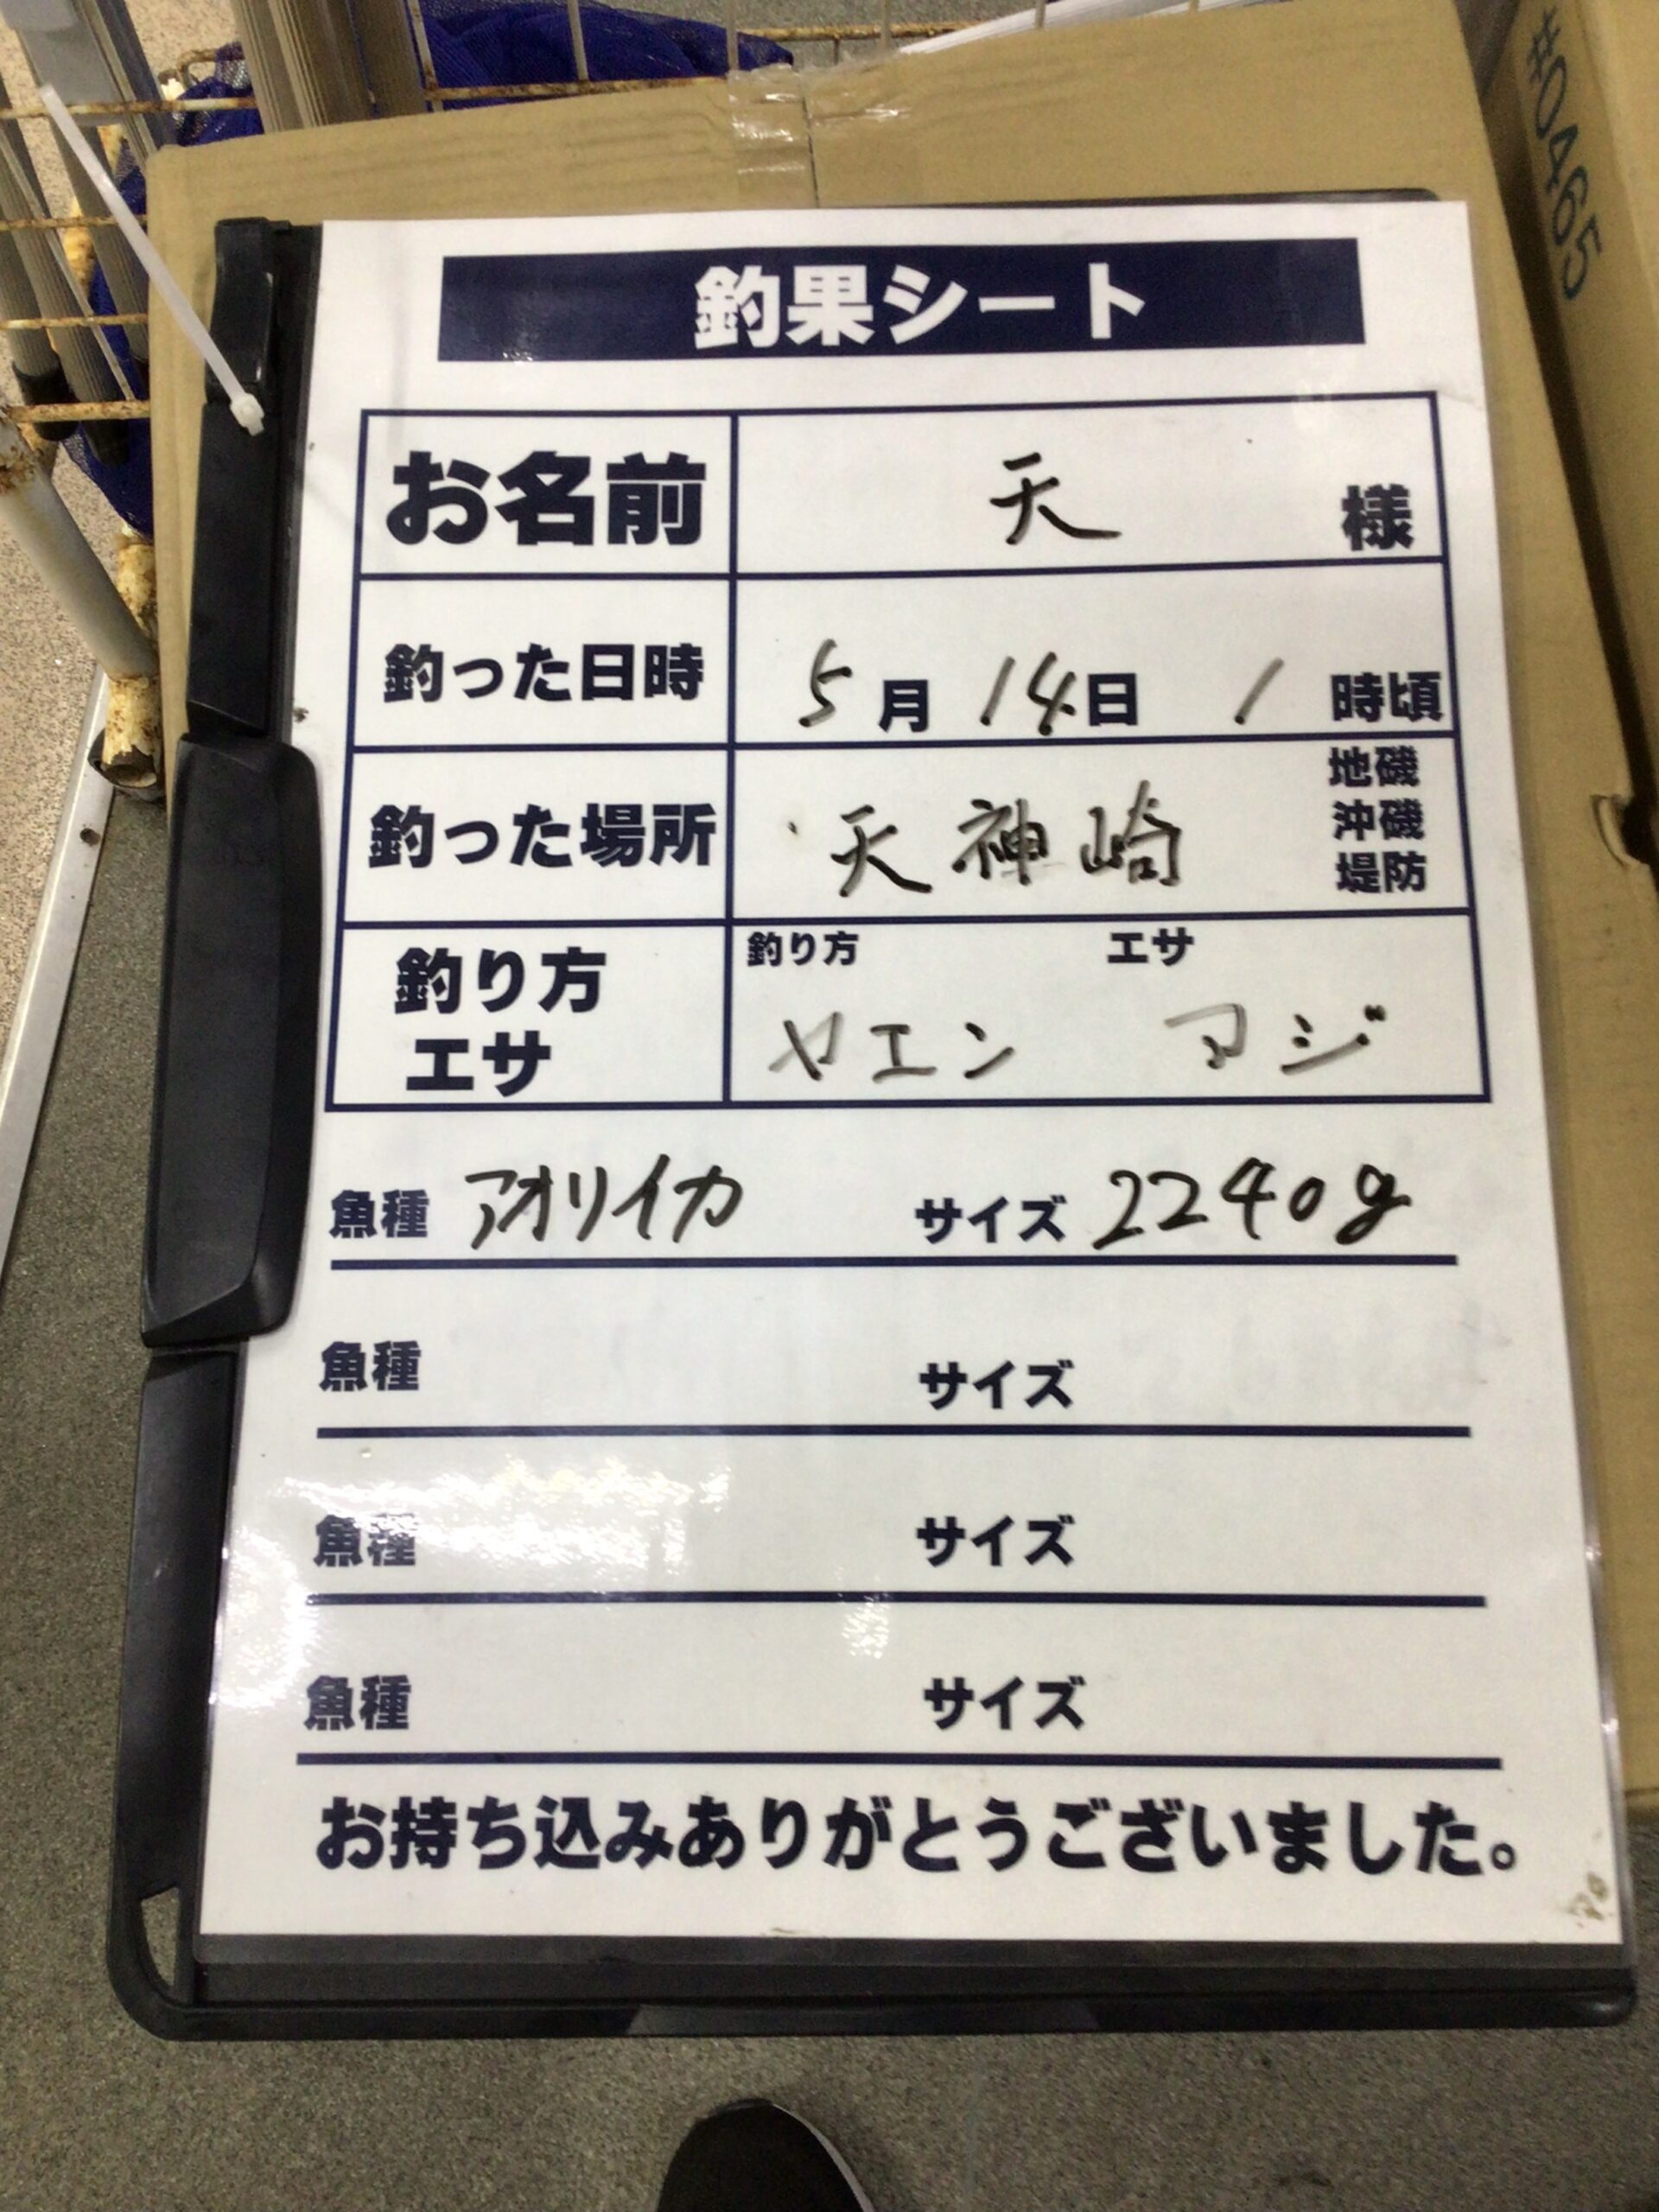 #0465
釣果シート
お名前 天 様
釣った日時 5月14日 1時頃
釣った場所 天神崎 地磯 沖磯 堤防
釣り方 エサ
釣り方 エサ
ヤエン アジ
魚種 アオリイカ サイズ 2240g
魚種 サイズ
魚種 サイズ
魚種 サイズ
お持ち込みありがとうございました。